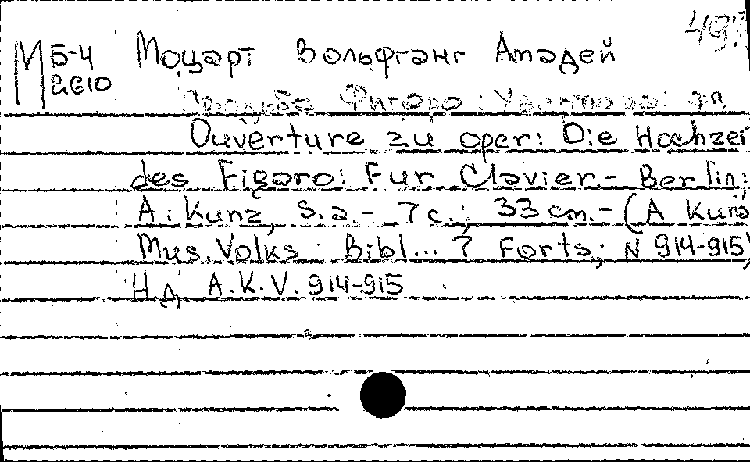 М Б-4 Моцарт Вольфганг Амадей
2610
Свадьба Фигаро: Увертюра:
Ouverture zu oper: Die Hochzei
des Figaro: Fur Clavier.- Berlin:
A. Kunz, S.a.- 7 c.; 33 cm.- (A Kunz
Mus. Volks Bibl... 7 Forts; N 914-915)
Н.д. A.K.V. 914-915